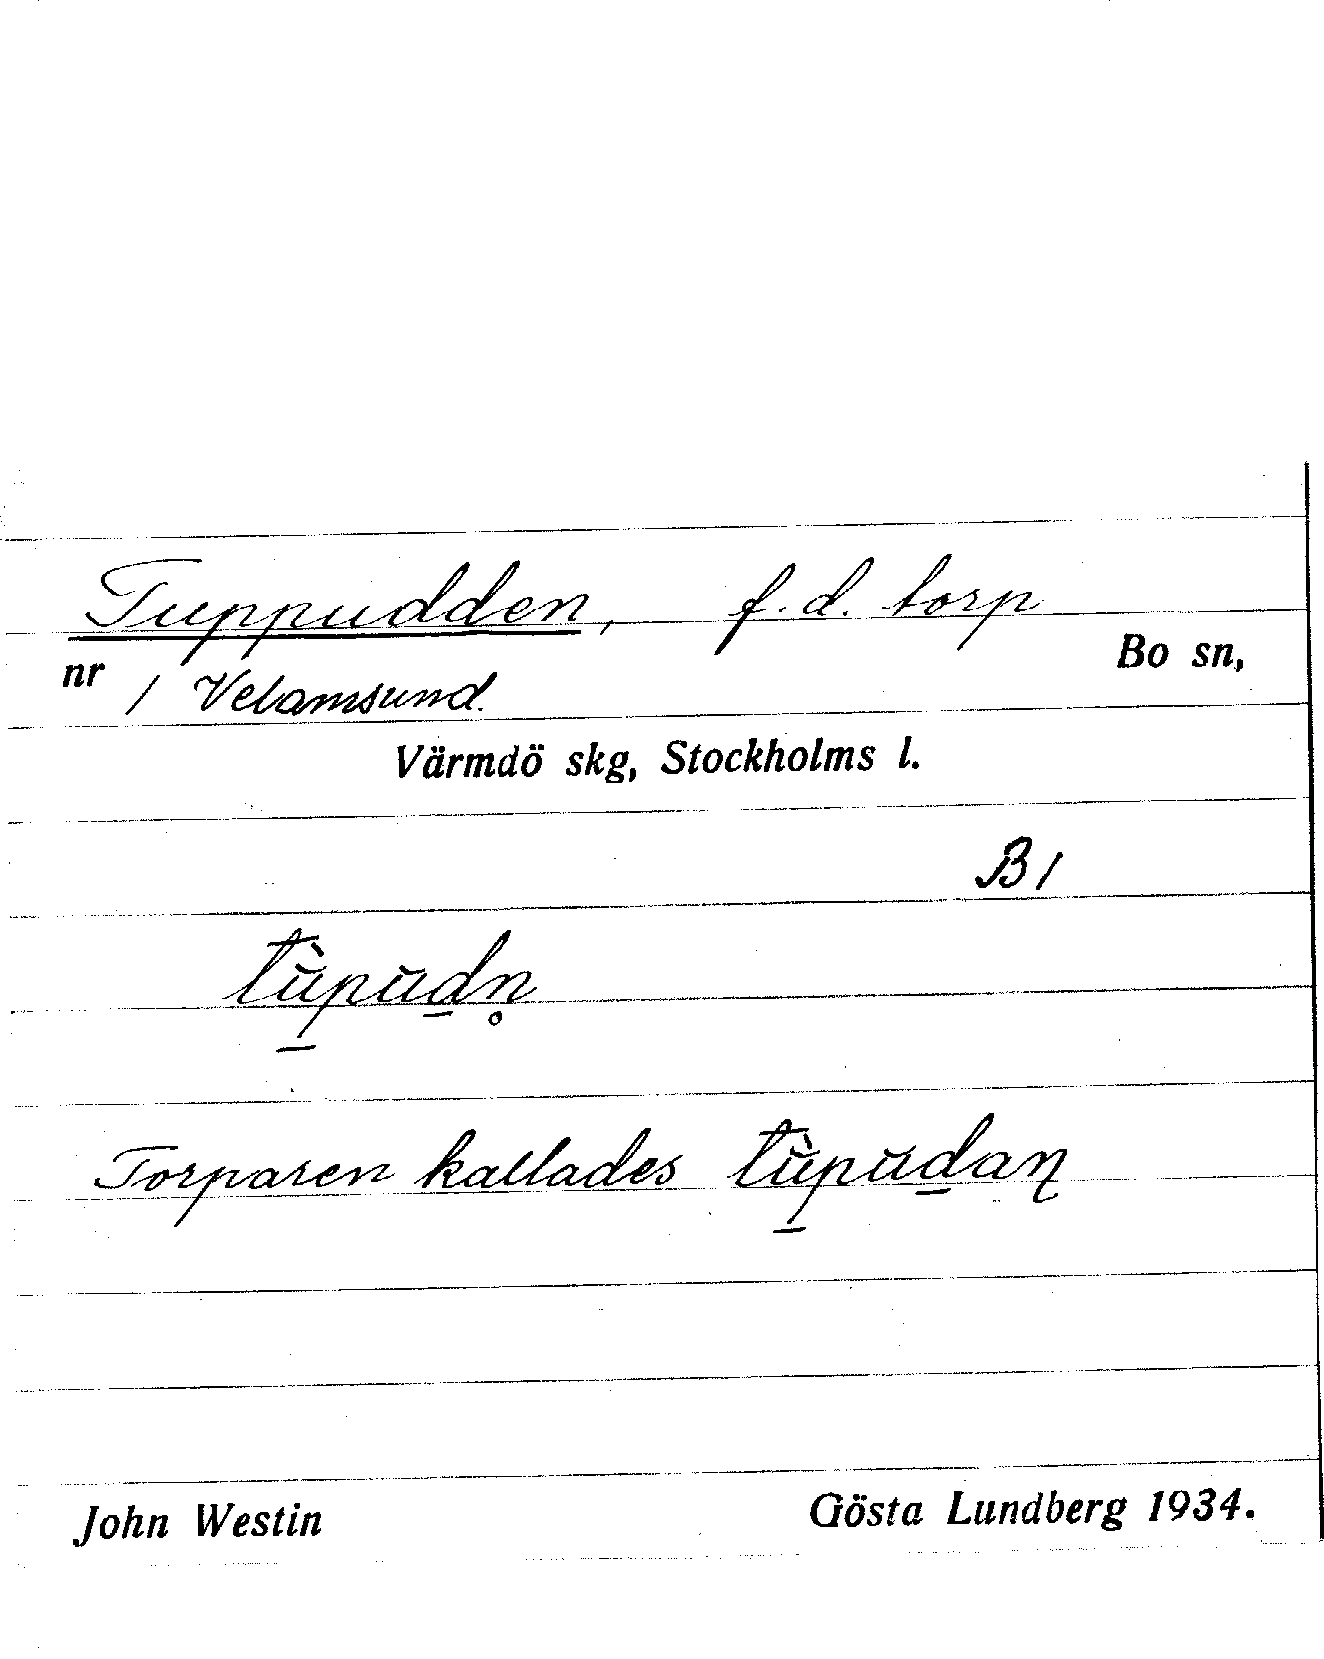 Tuppudden, f.d. torp
Bo sn,
nr 1 Velamsund.
Värmdö skg, Stockholms l.
B 1
tù̄p̱ūḏn̥
Torparen kallades tù̄p̱ūḏaɳ
John Westin Gösta Lundberg 1934.